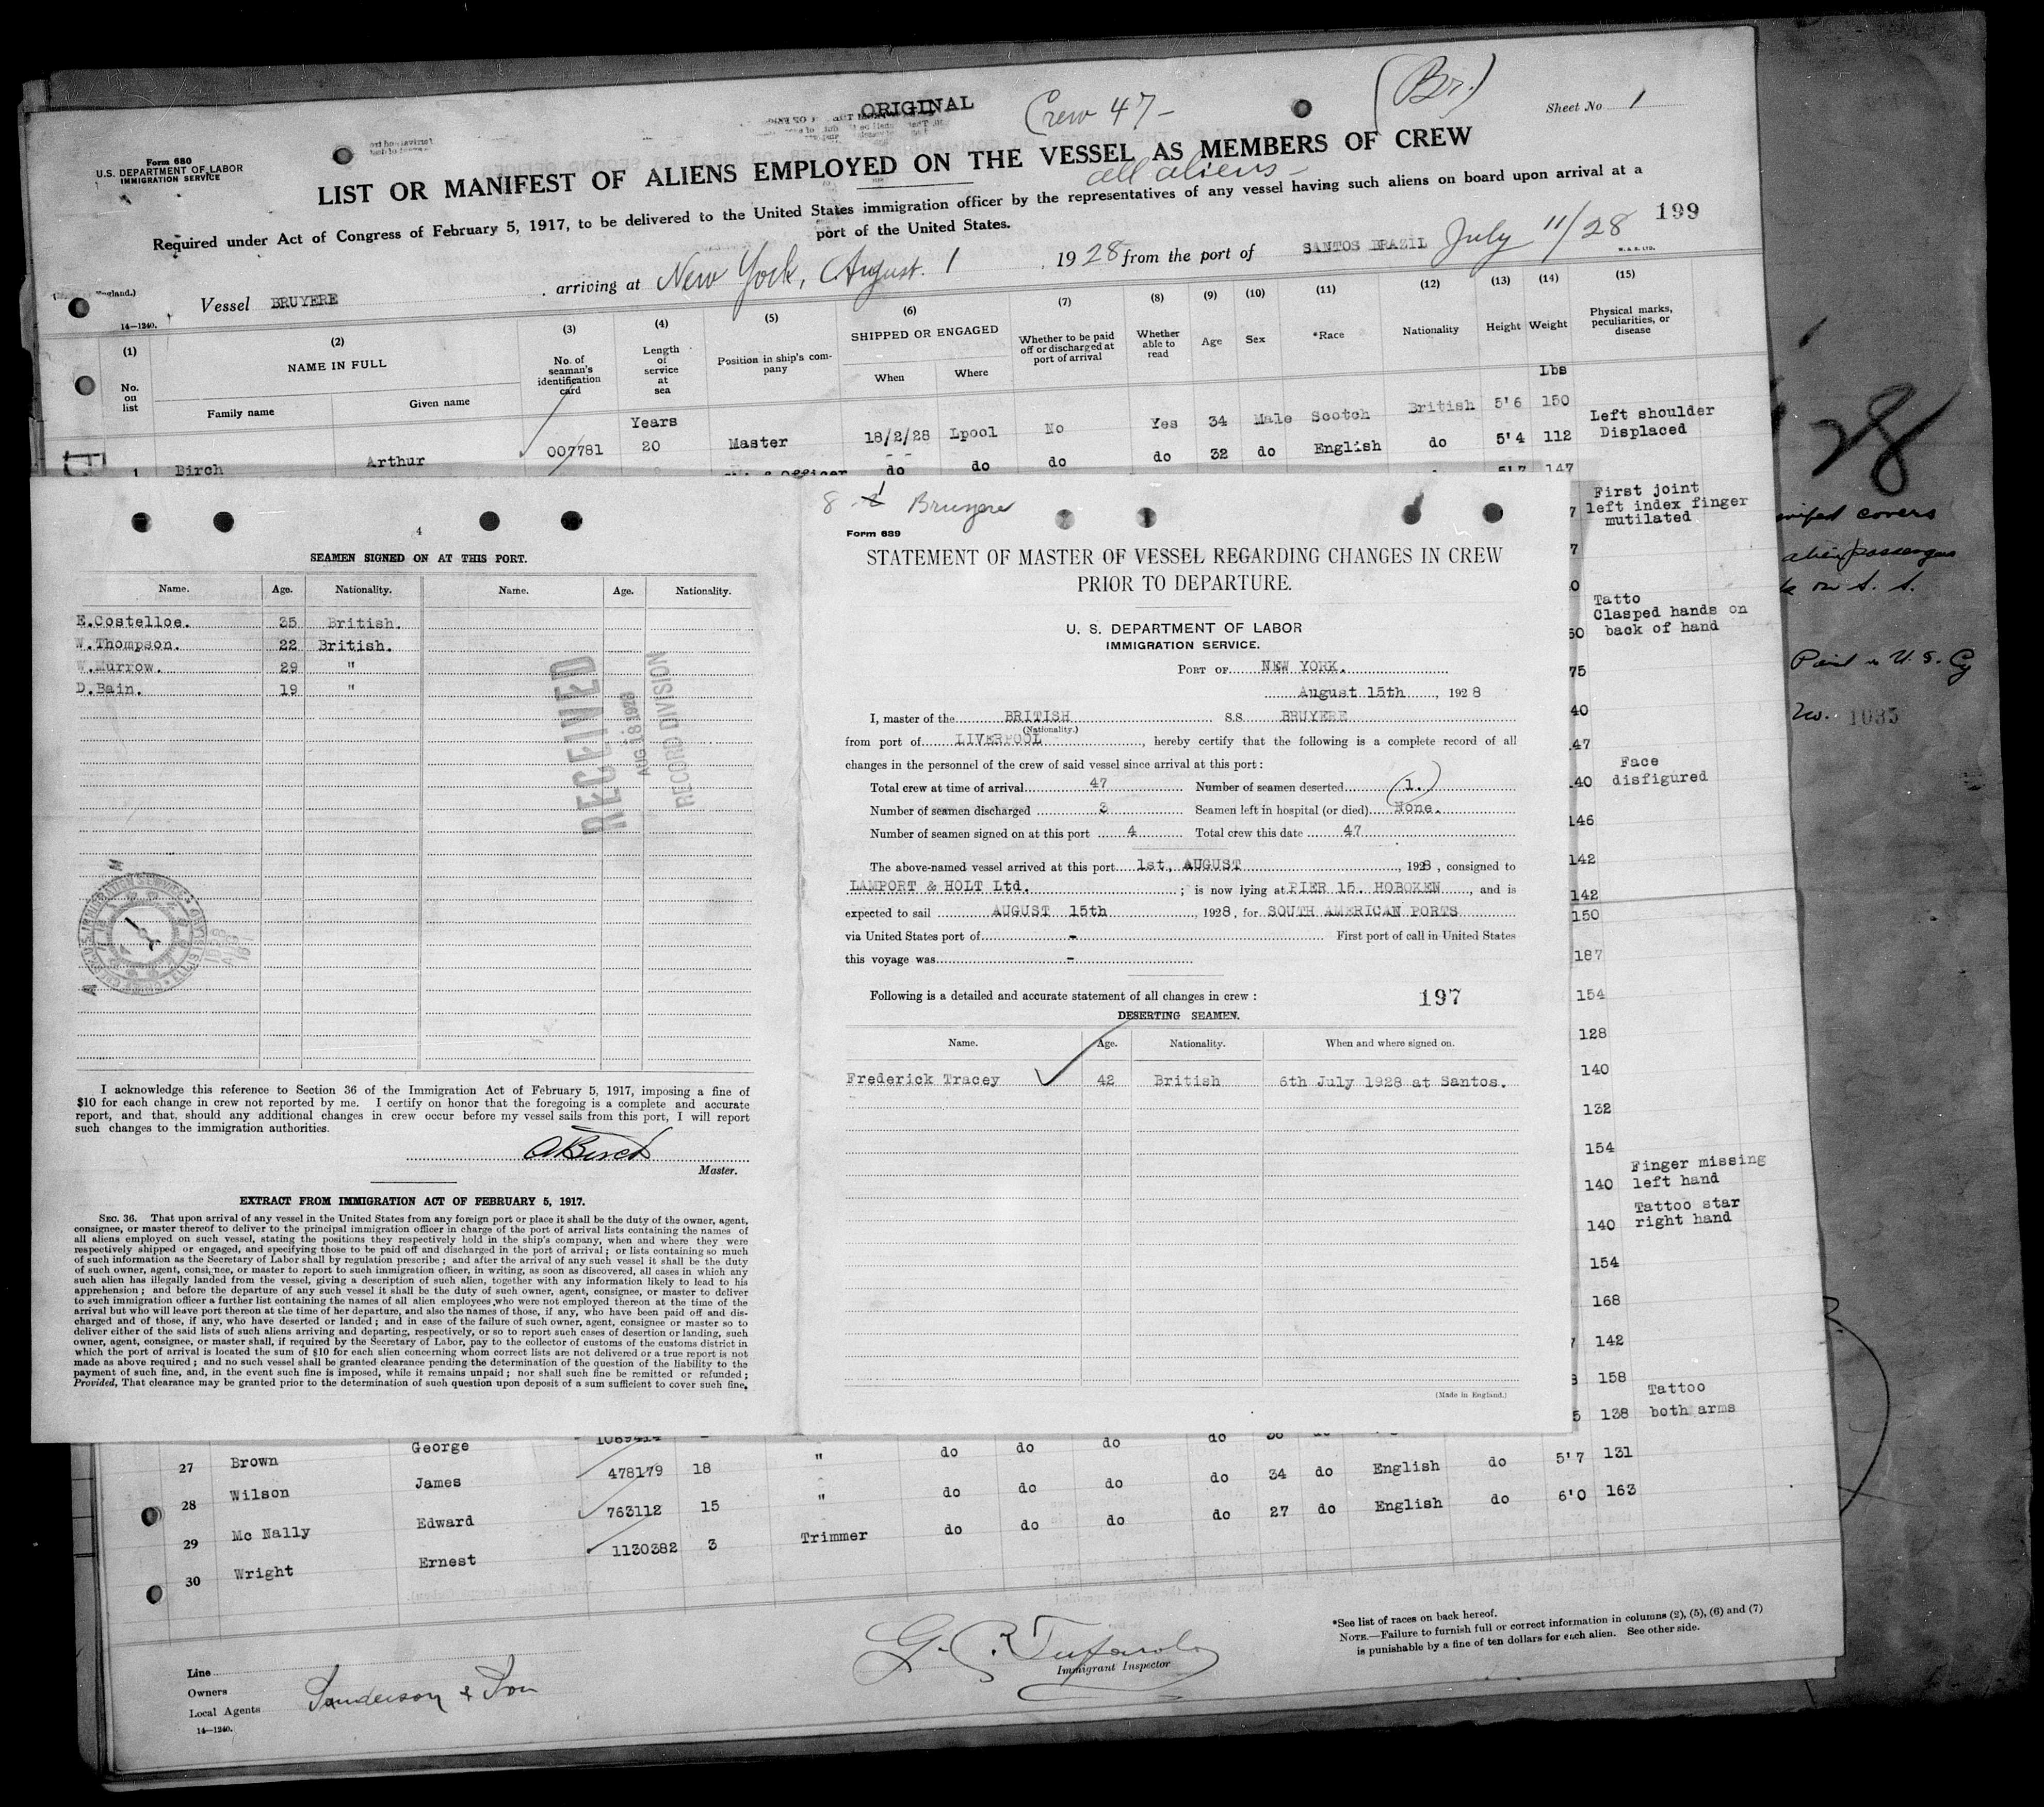 ORIGINAL
Crew 47-
(Br.)
Sheet No 1
Form 680
U.S. DEPARTMENT OF LABOR
IMMIGRATION SERVICE
LIST OR MANIFEST OF ALIENS EMPLOYED ON THE VESSEL AS MEMBERS OF CREW
all aliens-
Required under Act of Congress of February 5, 1917, to be delivered to the United States immigration officer by the representatives of any vessel having such aliens on board upon arrival at a
port of the United States.
199
Vessel BRUYERE arriving at New York, August. 1, 1928 from the port of SANTOS BRAZIL July 11/28
14—1240.
(1) (2) (3) (4) (5) (6) (7) (8) (9) (10) (11) (12) (13) (14) (15)
No. on list
NAME IN FULL
Family name Given name
No. of seaman's identification card
Length of service at sea
Position in ship's company
SHIPPED OR ENGAGED
When Where
Whether to be paid off or discharged at port of arrival
Whether able to read
Age Sex *Race Nationality Height Weight
Physical marks, peculiarities, or disease
Years Lbs
1 Birch Arthur 007781 20 Master 18/2/28 Lpool No Yes 34 Male Scotch British 5'6 150
Officer do do do do 32 do English do 5'4 112 Left shoulder
Displaced
5'7 147
First joint
left index finger
mutilated
Tatto
Clasped hands on
back of hand
75
40
Face
disfigured
146
142
142
150
187
154
128
140
132
154
140 Finger missing
left hand
140 Tattoo star
right hand
154
168
142
158
138 Tattoo
both arms
27 Brown George 1089414
28 Wilson James 478179 18 " do do do do 34 do English do 5'7 131
29 Mc Nally Edward 763112 15 " do do do do 27 do English do 6'0 163
30 Wright Ernest 1130382 3 Trimmer do do do
Line
Owners
Local Agents Sanderson & Son
14—1240.
Immigrant Inspector
*See list of races on back hereof.
NOTE.—Failure to furnish full or correct information in columns (2), (5), (6) and (7)
is punishable by a fine of ten dollars for each alien. See other side.
4
SEAMEN SIGNED ON AT THIS PORT.
Name. Age. Nationality. Name. Age. Nationality.
E.Costelloe. 35 British.
W.Thompson. 22 British.
W.Murrow. 29 "
D.Bain. 19 "
RECEIVED
AUG 18 1928
RECORD DIVISION
I acknowledge this reference to Section 36 of the Immigration Act of February 5, 1917, imposing a fine of
$10 for each change in crew not reported by me. I certify on honor that the foregoing is a complete and accurate
report, and that, should any additional changes in crew occur before my vessel sails from this port, I will report
such changes to the immigration authorities.
ABirch
Master.
EXTRACT FROM IMMIGRATION ACT OF FEBRUARY 5, 1917.
SEC. 36. That upon arrival of any vessel in the United States from any foreign port or place it shall be the duty of the owner, agent,
consignee, or master thereof to deliver to the principal immigration officer in charge of the port of arrival lists containing the names of
all aliens employed on such vessel, stating the positions they respectively hold in the ship's company, when and where they were
respectively shipped or engaged, and specifying those to be paid off and discharged in the port of arrival; or lists containing so much
of such information as the Secretary of Labor shall by regulation prescribe; and after the arrival of any such vessel it shall be the duty
of such owner, agent, consignee, or master to report to such immigration officer, in writing, as soon as discovered, all cases in which any
such alien has illegally landed from the vessel, giving a description of such alien, together with any information likely to lead to his
apprehension; and before the departure of any such vessel it shall be the duty of such owner, agent, consignee, or master to deliver
to such immigration officer a further list containing the names of all alien employees who were not employed thereon at the time of the
arrival but who will leave port thereon at the time of her departure, and also the names of those, if any, who have been paid off and dis-
charged and of those, if any, who have deserted or landed; and in case of the failure of such owner, agent, consignee or master so to
deliver either of the said lists of such aliens arriving and departing, respectively, or so to report such cases of desertion or landing, such
owner, agent, consignee, or master shall, if required by the Secretary of Labor, pay to the collector of customs of the customs district in
which the port of arrival is located the sum of $10 for each alien concerning whom correct lists are not delivered or a true report is not
made as above required; and no such vessel shall be granted clearance pending the determination of the question of the liability to the
payment of such fine, and, in the event such fine is imposed, while it remains unpaid; nor shall such fine be remitted or refunded;
Provided, That clearance may be granted prior to the determination of such question upon deposit of a sum sufficient to cover such fine.
8 - 1 Bruyere
Form 689
STATEMENT OF MASTER OF VESSEL REGARDING CHANGES IN CREW
PRIOR TO DEPARTURE.
U. S. DEPARTMENT OF LABOR
IMMIGRATION SERVICE.
PORT OF NEW YORK.
August 15th, 1928
I, master of the BRITISH S.S. BRUYERE
(Nationality.)
from port of LIVERPOOL, hereby certify that the following is a complete record of all
changes in the personnel of the crew of said vessel since arrival at this port:
Total crew at time of arrival 47 Number of seamen deserted 1.
Number of seamen discharged 3 Seamen left in hospital (or died) None.
Number of seamen signed on at this port 4 Total crew this date 47
The above-named vessel arrived at this port 1st, AUGUST, 1928, consigned to
LAMPORT & HOLT Ltd. ; is now lying at PIER 15. HOBOKEN, and is
expected to sail AUGUST 15th, 1928, for SOUTH AMERICAN PORTS
via United States port of - First port of call in United States
this voyage was -
Following is a detailed and accurate statement of all changes in crew: 197
DESERTING SEAMEN.
Name. Age. Nationality. When and where signed on.
Frederick Tracey 42 British 6th July 1928 at Santos.
(Made in England.)
28
covers
alien passengers
on S. S.
Paid in U. S. Cy
No. 1035